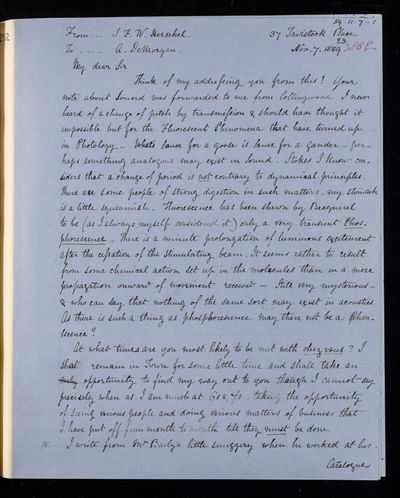 59-11-7-1
252
From... J. F. W. Herschel. 37 Tavistock Place
To.... A. DeMorgan. Nov. 7. 1859.
23
My dear Sir
Think of my addressing you from this! Your
note about Sound was forwarded to me from Collingwood I never
heard of a change of pitch by transmission & should have thought it
impossible but for the Fluorescent Phenomena that have turned up
in Photology – Whats Sauce for a goose is Sauce for a gander – per-
haps something analogous may exist in Sound. Stokes I know con-
siders that a change of period is not contrary to dynamical principles.
There are some people of strong digestion in such matters – my stomach
is a little squeamish. Fluorescence has been shewn by Becquerel
to be (as I always myself considered it) only a very transient Phos-
phorescence. There is a minute prolongation of luminous excitement
after the cessation of the stimulating beam. It seems rather to result
from some chemical action set up in the molecules than in a mere
propagation onward of movement received – Still very mysterious –
& who can say that nothing of the same sort may exist in acoustics
As there is such a thing as phosphorescence may there not be a Phon-
escence?
At what times are you most likely to be met with chez vous? I
shall remain in Town for some little time and shall take an
opportunity to find my way out to you though I cannot say
precisely when as I am much at taking the opportunity
of seeing various people and doing various matters of business that
I have put off from month to month till they must be done
I write from Mr Baily's little snuggery where he worked at his
Catalogues